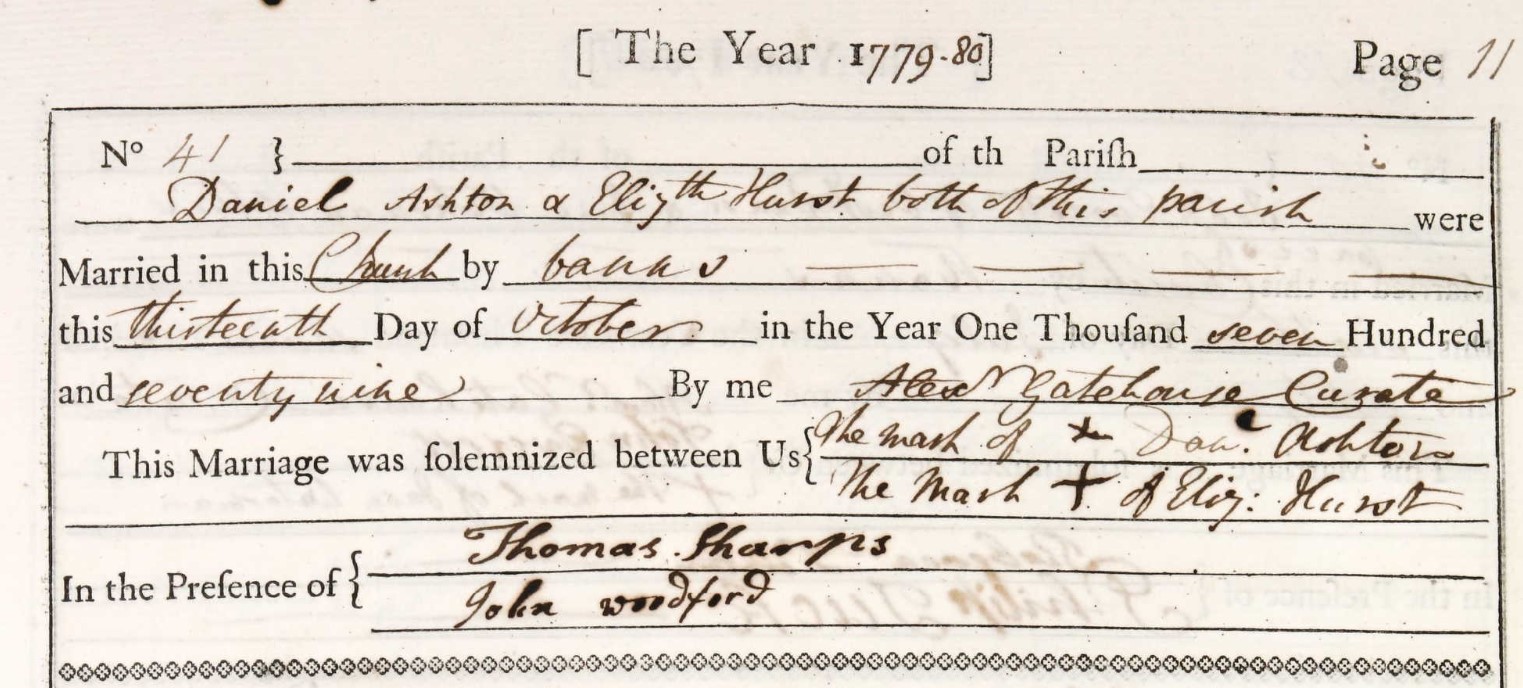 [ The Year 1779-80] Page 11
Nº 41 } of th Pariſh
Daniel Ashton & Elizth Hurst both of this parish were
Married in this Church by banns
this thirteenth Day of October in the Year One Thouſand seven Hundred
and seventy nine By me Alexr Gatehouse Curate
This Marriage was ſolemnized between Us { The mark of + Dan: Ashton
The Mark + of Eliz: Hurst
In the Preſence of { Thomas Sharps
John woodford